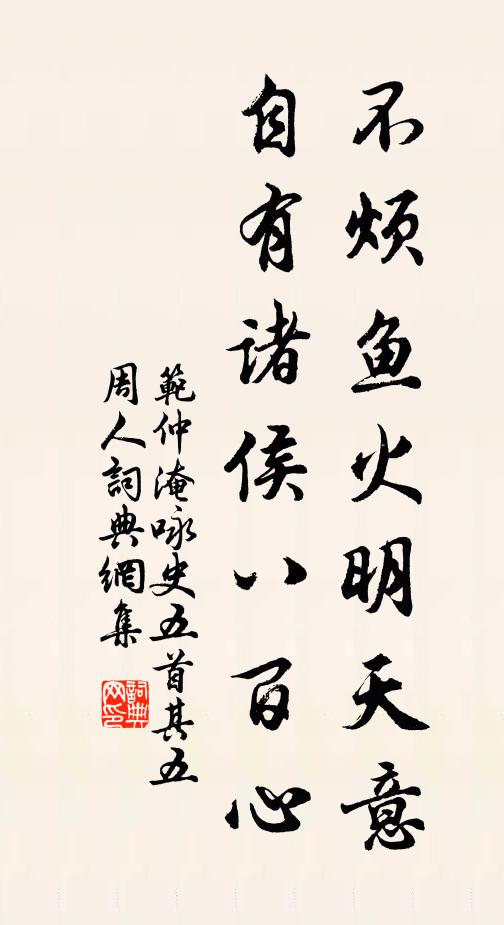 不烦鱼火明天意
自有诸侯八百心
範仲淹咏史五首其五
周人詞典網集
詞典
网印